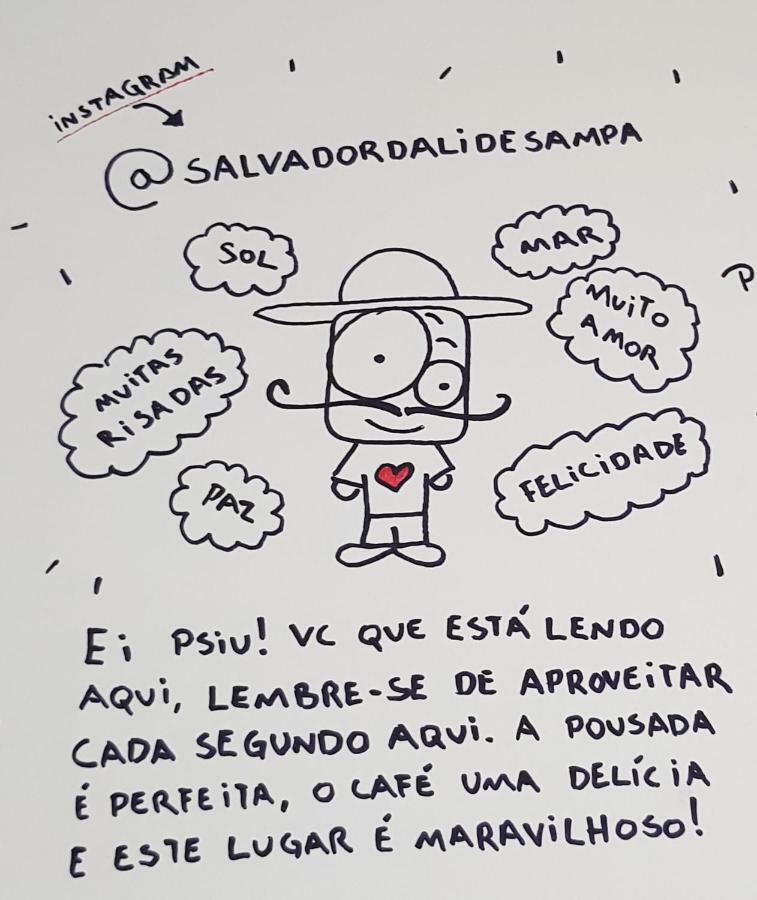 iNSTAGRAM
@SALVADORDALiDESAMPA
SOL
MAR
MUiTO
AMOR
MUiTAS
RiSADAS
PAZ
FELiCiDADE
Ei PSiU! VC QUE ESTÁ LENDO
AQUi, LEMBRE-SE DE APROVEiTAR
CADA SEGUNDO AQUi. A POUSADA
É PERFEiTA, O CAFÉ UMA DELÍCiA
E ESTE LUGAR É MARAViLHOSO!